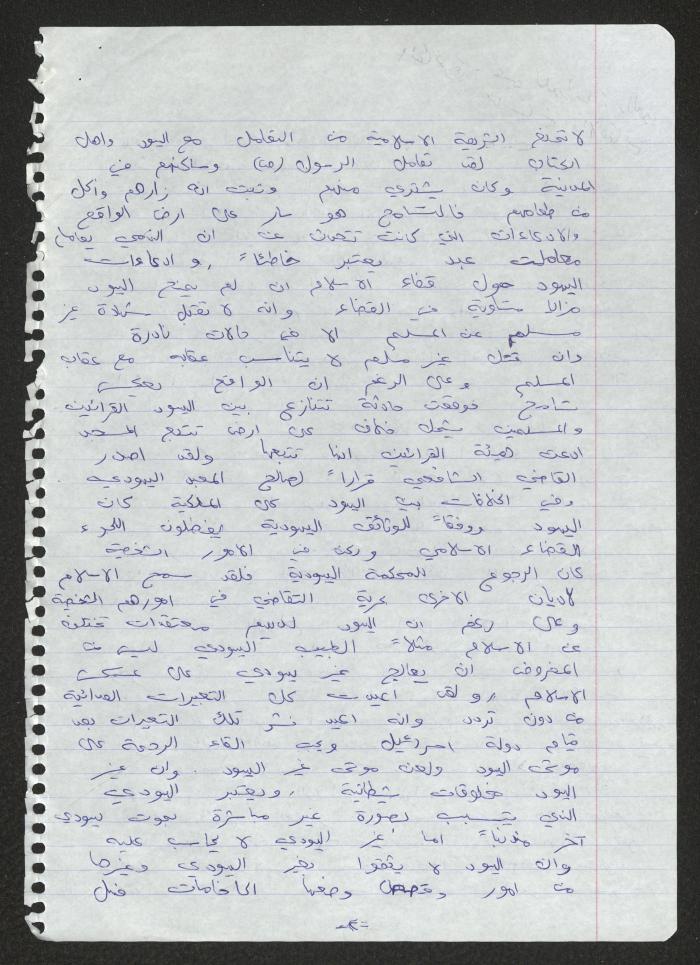 لا تمنع الشريعة الاسلامية من التعامل مع اليهود واهل
الكتاب لقد تعامل الرسول (ص) وساكنهم في
المدينة وكان يشتري منهم وثبت انه زارهم وأكل
من طعامهم فالتسامح هو سار على ارض الواقع
والادعاءات التي كانت تتحدث عن ان الذمي يعامل
معاملة عبد يعتبر خاطئاً، و ادعاءات
اليهود حول قضاء الاسلام ان لم يمنح اليهود
مساوية في القضاء وانه لا تقبل شهادة غير
مسلم عن المسلم الا في حالات نادرة
وان قتل غير مسلم لا يتناسب عقابه مع عقاب
المسلم وعلى الرغم ان الواقع يعكس
تسامح فوقعت حادثة تنازع بين اليهود القرائين
والمسلمين يشمل خلاف على ارض تتبع المسجد
ادعت هيئة القرائين انها تتبعها ولقد اصدر
القاضي الشافعي قراراً لصالح المعبد اليهودي
وفي الخلافات بين اليهود على الملكية كان
اليهود ووفقاً للوثائق اليهودية يفضلون اللجوء
للقضاء الاسلامي ولكن في الامور الشخصية
كان الرجوع للمحكمة اليهودية فلقد سمح الاسلام
لاديان الاخرى حرية التقاضي في امورهم الشخصية
وعلى رغم ان اليهود لديهم معتقدات تختلف
عن الاسلام مثلاً الطبيب اليهودي ليس من
المفروض ان يعالج غير يهودي على عكس
الاسلام، ولقد اعيدت كل التعبيرات العدائية
من دون تردد وانه اعيد نشر تلك التعبيرات بعد
قيام دولة اسرائيل ويجب القاء الرحمة على
موتى اليهود ولعن موتى غير اليهود. وان غير
اليهود مخلوقات شيطانية، ويعتبر اليهودي
الذي يتسبب بصورة غير مباشرة بموت يهودي
آخر مذنباً اما غير اليهودي لا يحاسب عليه
وان اليهود لا يثقوا بغير اليهودي وغيرها
من امور وضعها الحاخامات قبل